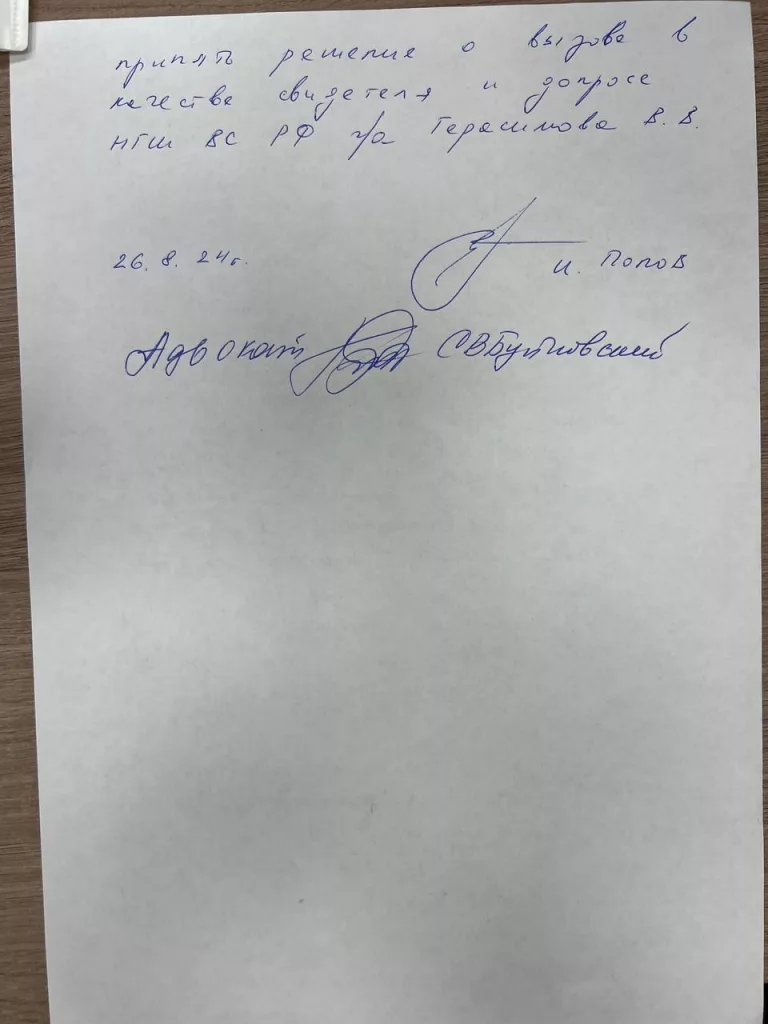 принять решение о вызове в
качестве свидетеля и допросе
НГШ ВС РФ г/а Герасимова В. В.
26. 8. 24г. И. Попов
Адвокат СВБутковский